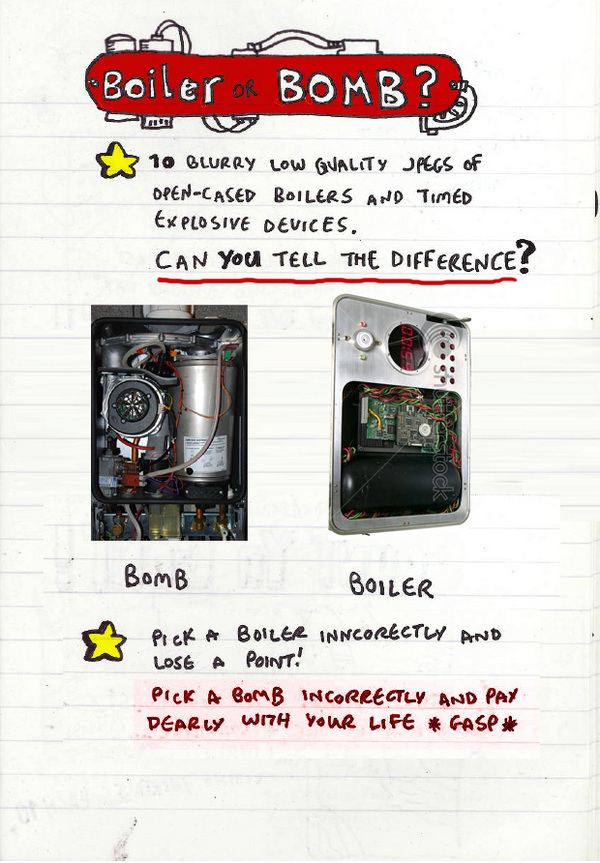 Boiler OR BOMB?
10 BLURRY LOW QUALITY JPEGS OF
OPEN-CASED BOILERS AND TIMED
EXPLOSIVE DEVICES.
CAN YOU TELL THE DIFFERENCE?
BOMB
BOILER
PICK A BOILER INNCORECTLY AND
LOSE A POINT!
PICK A BOMB INCORRECTLY AND PAY
DEARLY WITH YOUR LIFE *GASP*